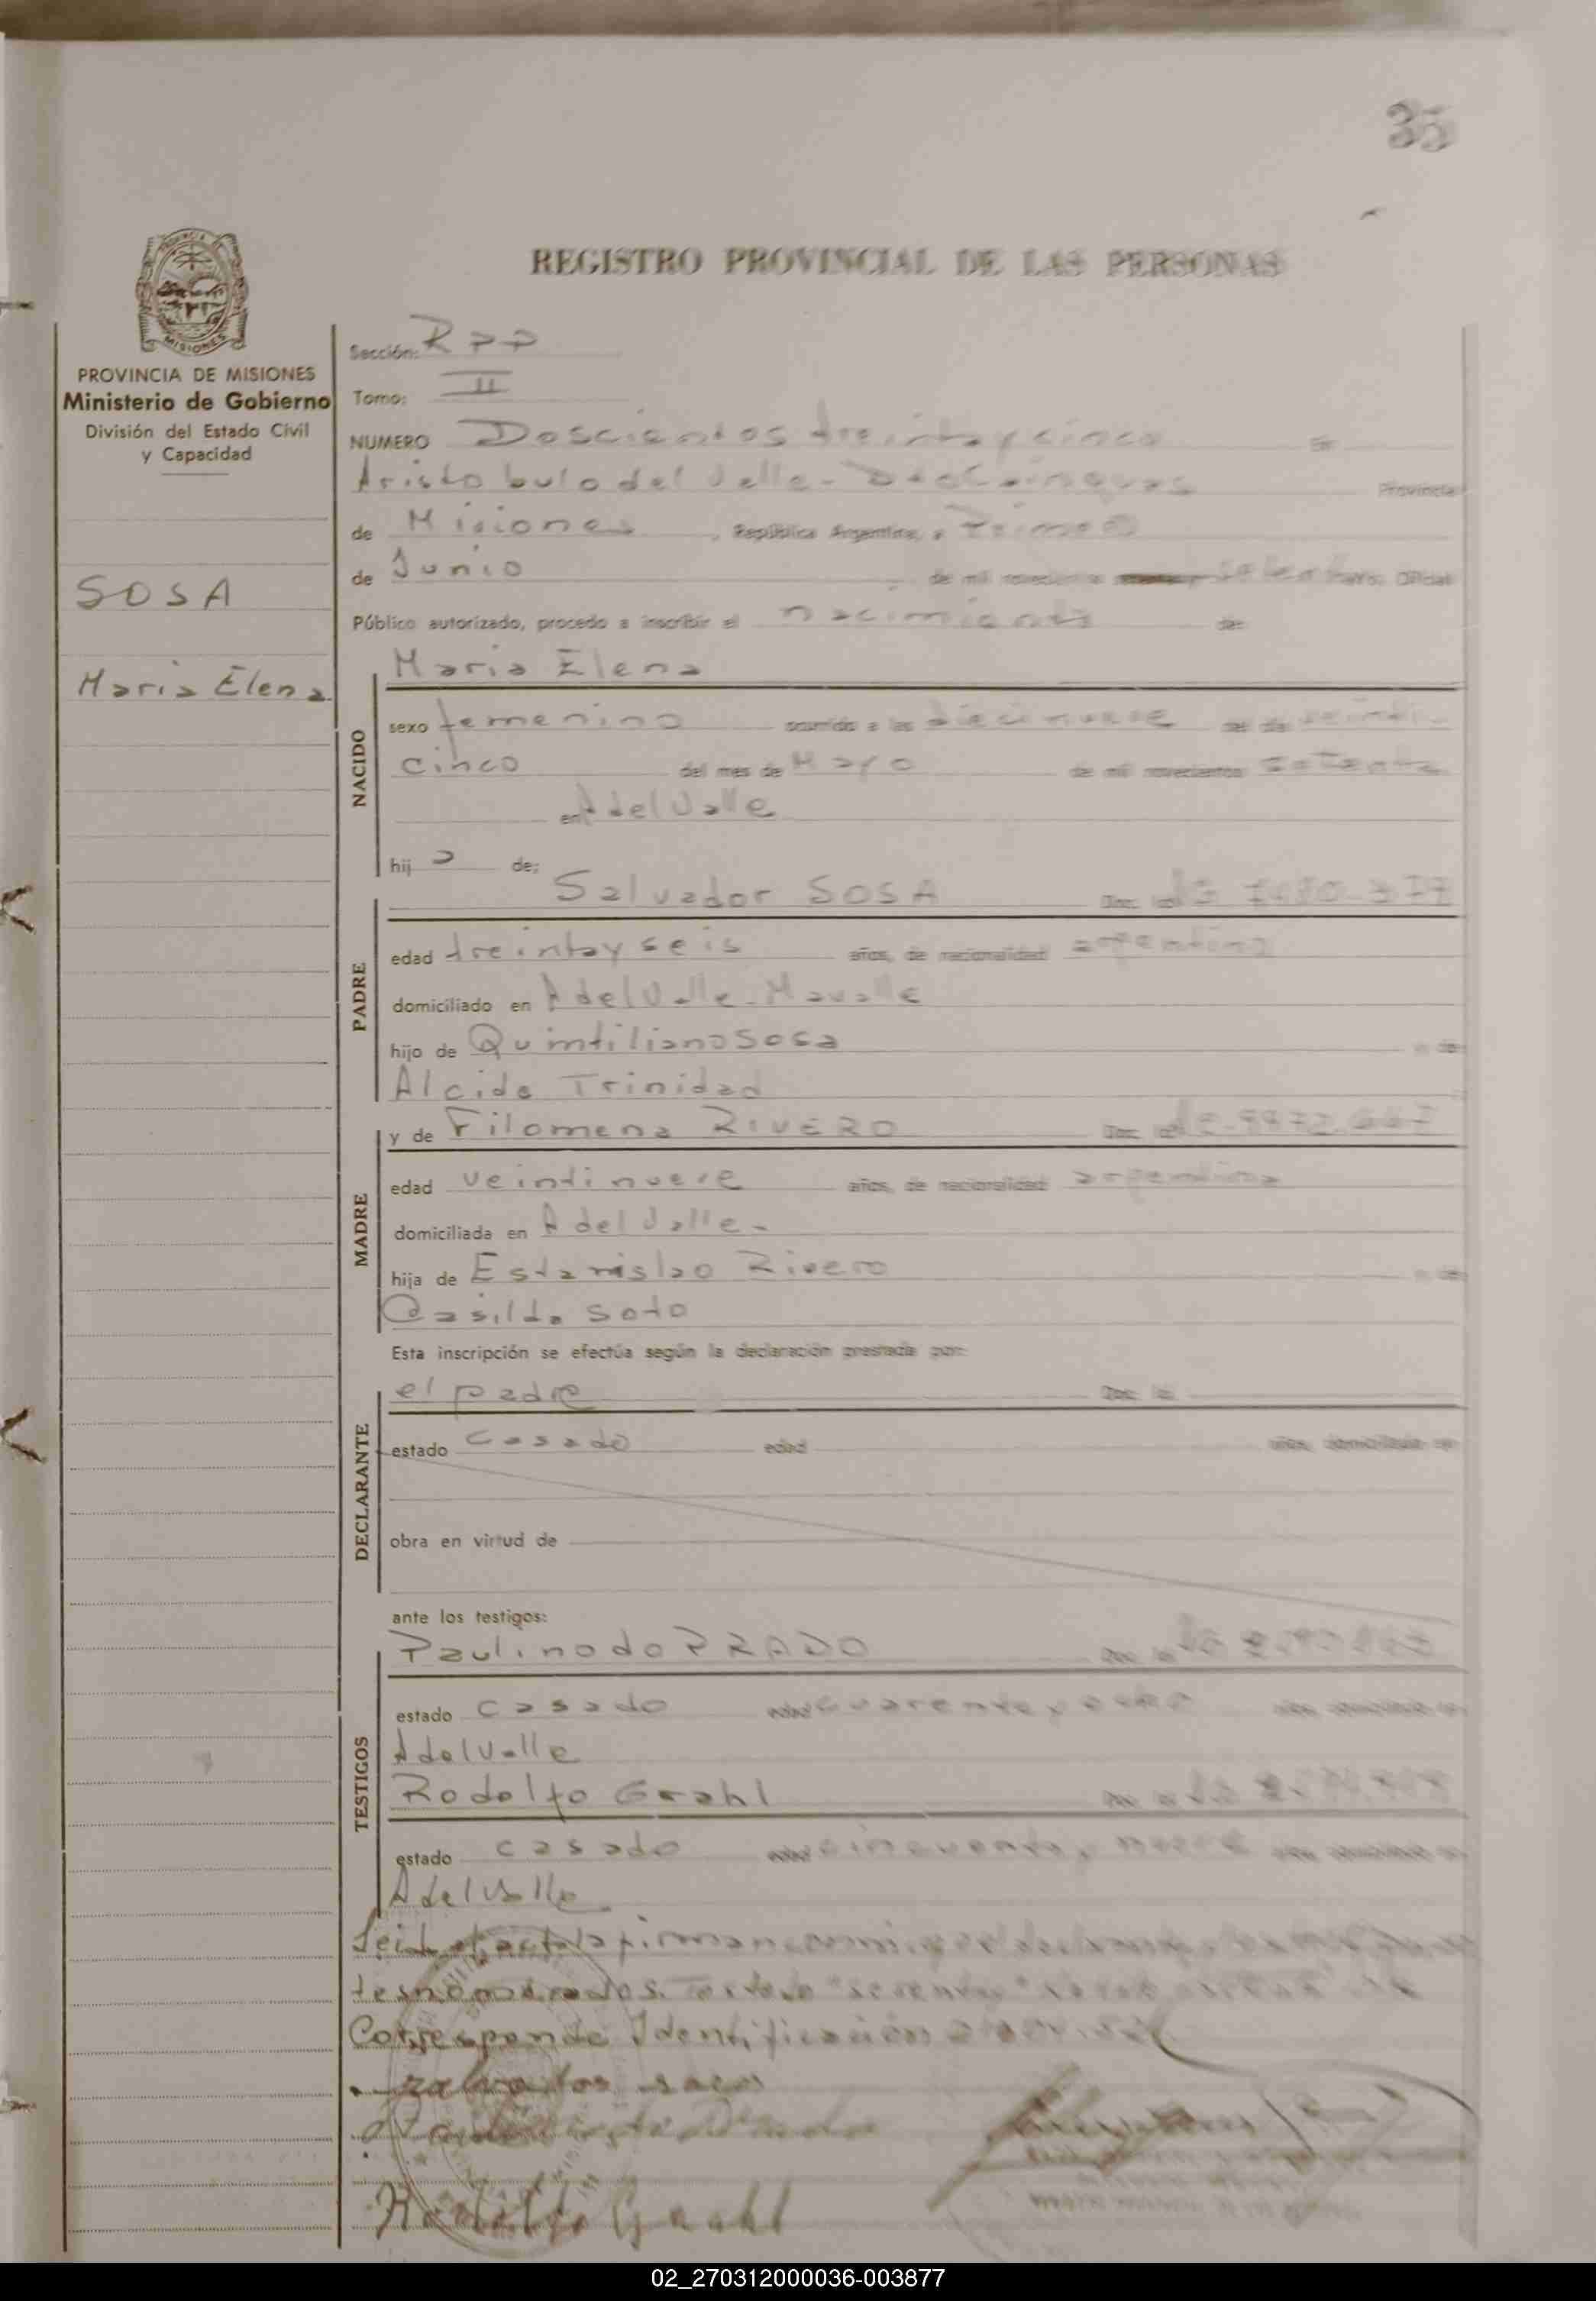 35
REGISTRO PROVINCIAL DE LAS PERSONAS
PROVINCIA DE MISIONES
Ministerio de Gobierno
División del Estado Civil
y Capacidad
SOSA
Maria Elena
Sección: RPP
Tomo: II
NUMERO Doscientos treinta y cinco En
Aristobulo del Valle - Provincia
de Misiones, República Argentina, a Primero
de Junio de mil novecientos setenta Oficial
Público autorizado, procedo a inscribir el nacimiento de:
Maria Elena
NACIDO
sexo femenino ocurrido a las diecinueve del día veinti-
cinco del mes de Mayo de mil novecientos setenta
en A del Valle
hija de:
Salvador SOSA Doc. Id.
PADRE
edad treinta y seis años, de nacionalidad argentina
domiciliado en A del Valle - Mavalle
hijo de Quintiliano Sosa y de
Alcida Trinidad
y de Filomena RIVERO Doc. Id.
MADRE
edad veintinueve años, de nacionalidad argentina
domiciliada en A del Valle -
hija de Estanislao Rivero y de
Casilda Soto
Esta inscripción se efectúa según la declaración prestada por:
el padre Doc. Id.
DECLARANTE
estado casado edad años, domiciliado en
obra en virtud de
ante los testigos:
Paulino do PRADO
TESTIGOS
estado casado edad cuarenta y ocho años, domiciliado en
A del Valle
Rodolfo Grahl
estado casado edad cincuenta y nueve años, domiciliado en
A del Valle
Leida el acta la firman conmigo el declarante
Testado
Corresponde Identificación
Rodolfo Grahl
02_270312000036-003877